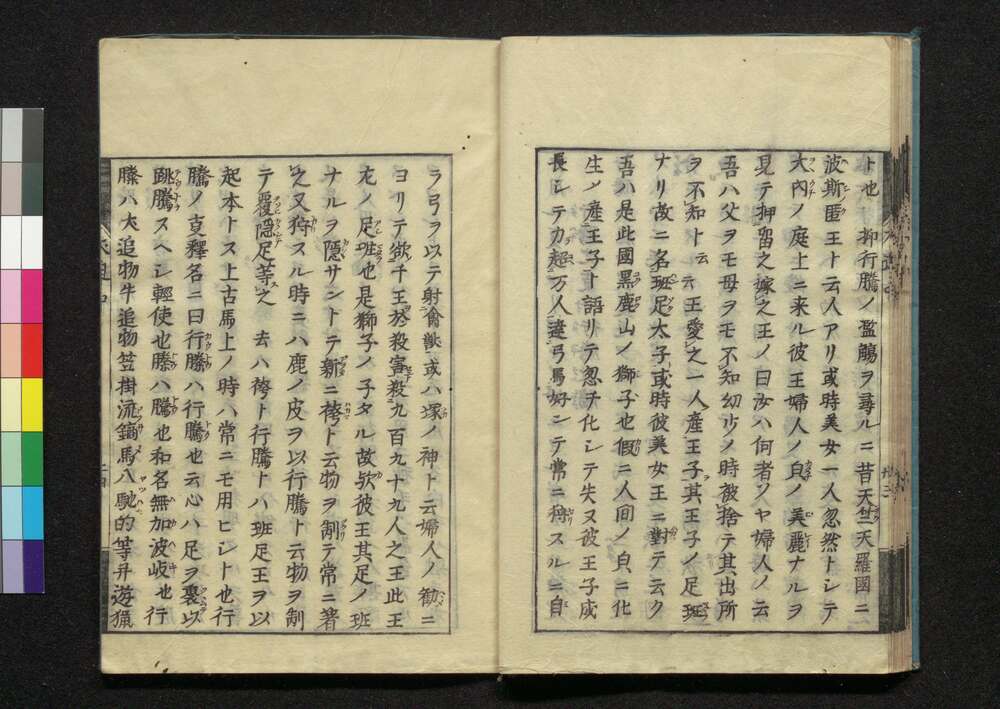 ト也 抑行騰ノ濫觴ヲ尋ルニ昔天竺天羅國ニ
波斯匿王ト云人アリ或時美女一人忽然トシテ
大內ノ庭上ニ来ル彼王婦人ノ皃ノ美麗ナルヲ
見テ押留之嫁之王ノ曰汝ハ何者ソヤ婦人ノ云
吾ハ父ヲモ母ヲモ不知幼少ノ時被捨テ其出所
ヲ不知ト云云王愛之一人産王子其王子ノ足班
ナリ故ニ名班足太子或時彼美女王ニ對テ云ク
吾ハ是此國黒鹿山ノ獅子也假ニ人間ノ皃ニ化
生メ産王子ト語リテ忽チ化シテ失ヌ彼王子成
長シテ力超万人達弓馬好ンテ常ニ狩スルニ自
ラ弓ヲ以テ射禽獣或ハ塚ノ神ト云婦人ノ勧ニ
ヨリテ欲千王殺害殺九百九十九人之王此王
尤ノ足班也是獅子ノ子タル故欤彼王其足ノ班
ナルヲ隠サントテ新ニ袴ト云物ヲ制テ常ニ著
之又狩スル時ニハ鹿ノ皮ヲ以行騰ト云物ヲ制
テ覆隠足等之 去ハ袴ト行騰トハ班足王ヲ以
起本トス上古馬上ノ時ハ常ニモ用ヒシト也行
騰ノ叓釋名ニ曰行縢ハ行騰也云心ハ足ヲ裹以
跳騰スヘシ輕使也縢ハ騰也和名無加波岐也行
縢ハ犬追物牛追物笠掛流鏑馬八馳的等并遊猟